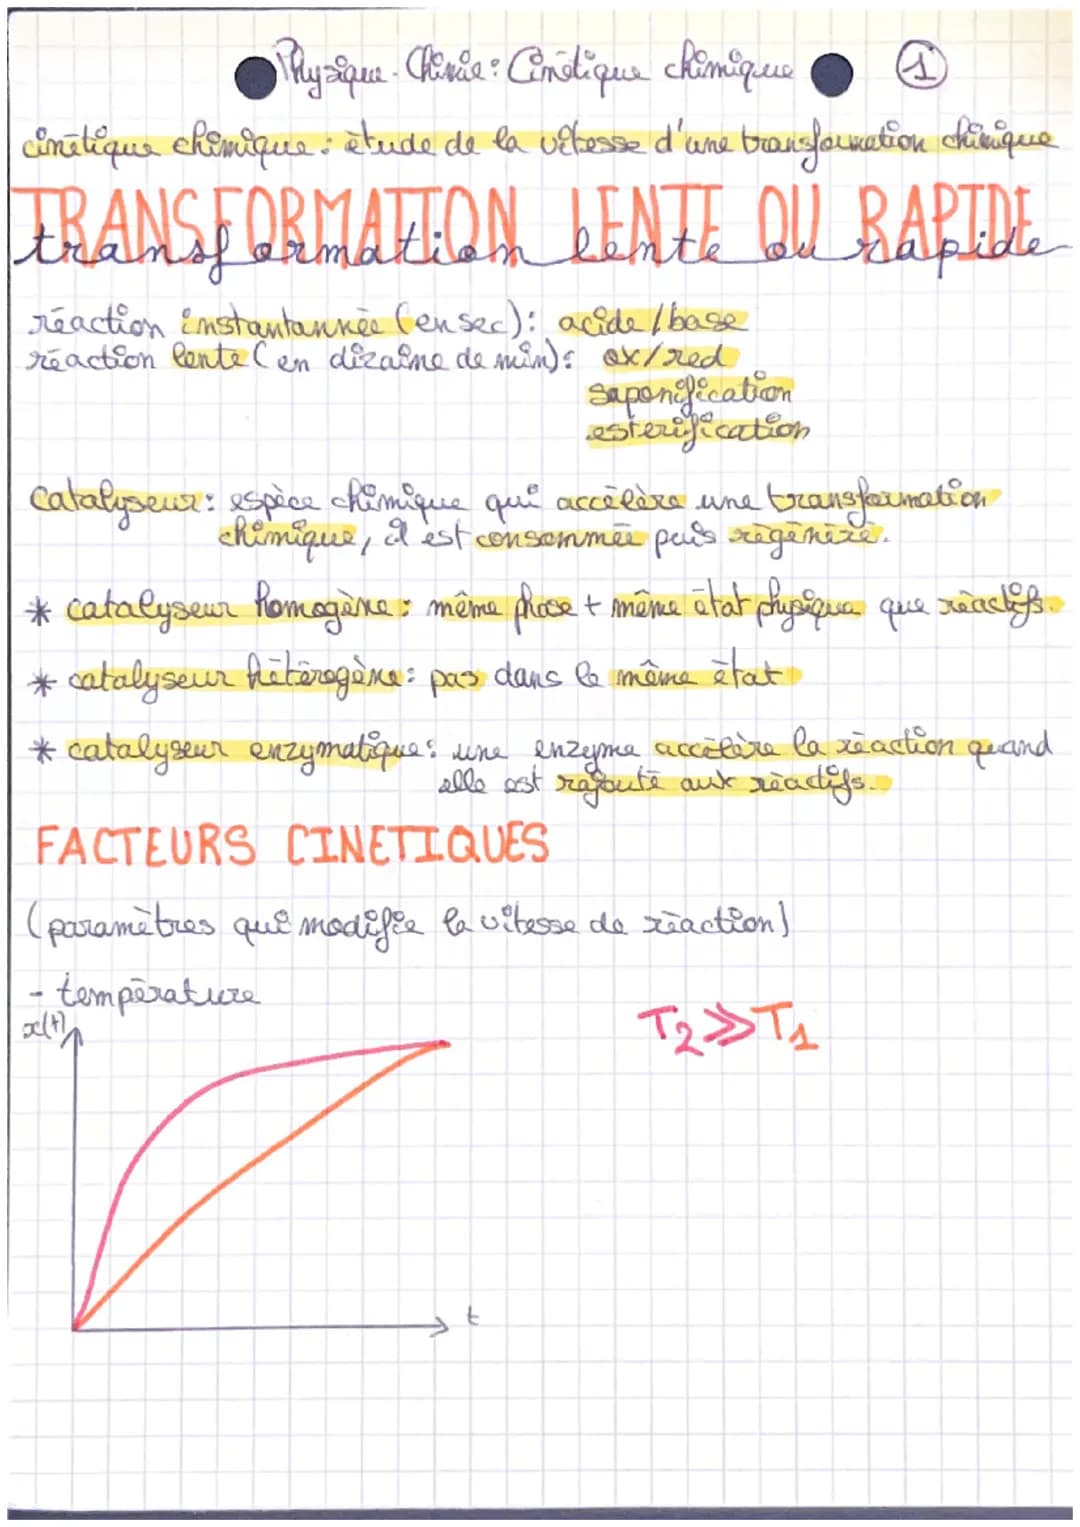 Physique-Chimie: Cinétique chimique 1
cinétique chimique: étude de la vitesse d'une transformation chimique
TRANSFORMATION LENTE OU RAPIDE
transformation lente ou rapide
réaction instantannée (en sec): acide/base
réaction lente (en dizaine de min): ox/red
saponification
esterification
Catalyseur: espèce chimique qui accélère une transformation
chimique, il est consommée puis régénéré.
* catalyseur homogène: même phase + même état physique que réactifs.
* catalyseur hétérogène: pas dans le même état
* catalyseur enzymatique: une enzyme accélère la réaction quand
elle est rajouté aux réactifs.
FACTEURS CINETIQUES
(paramètres qui modifie la vitesse de réaction)
- température
x(t)
T₂ >> T₁
t